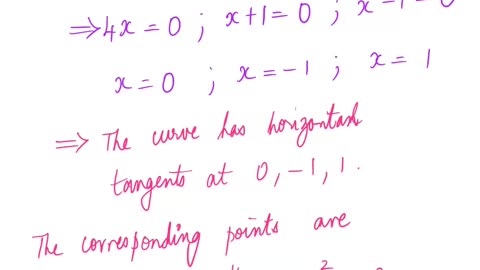 ⇒ 4x = 0 ; x + 1 = 0 ; x - 1 = 0
x = 0 ; x = -1 ; x = 1
⇒ The curve has horizontal
tangents at 0, -1, 1.
The corresponding points are